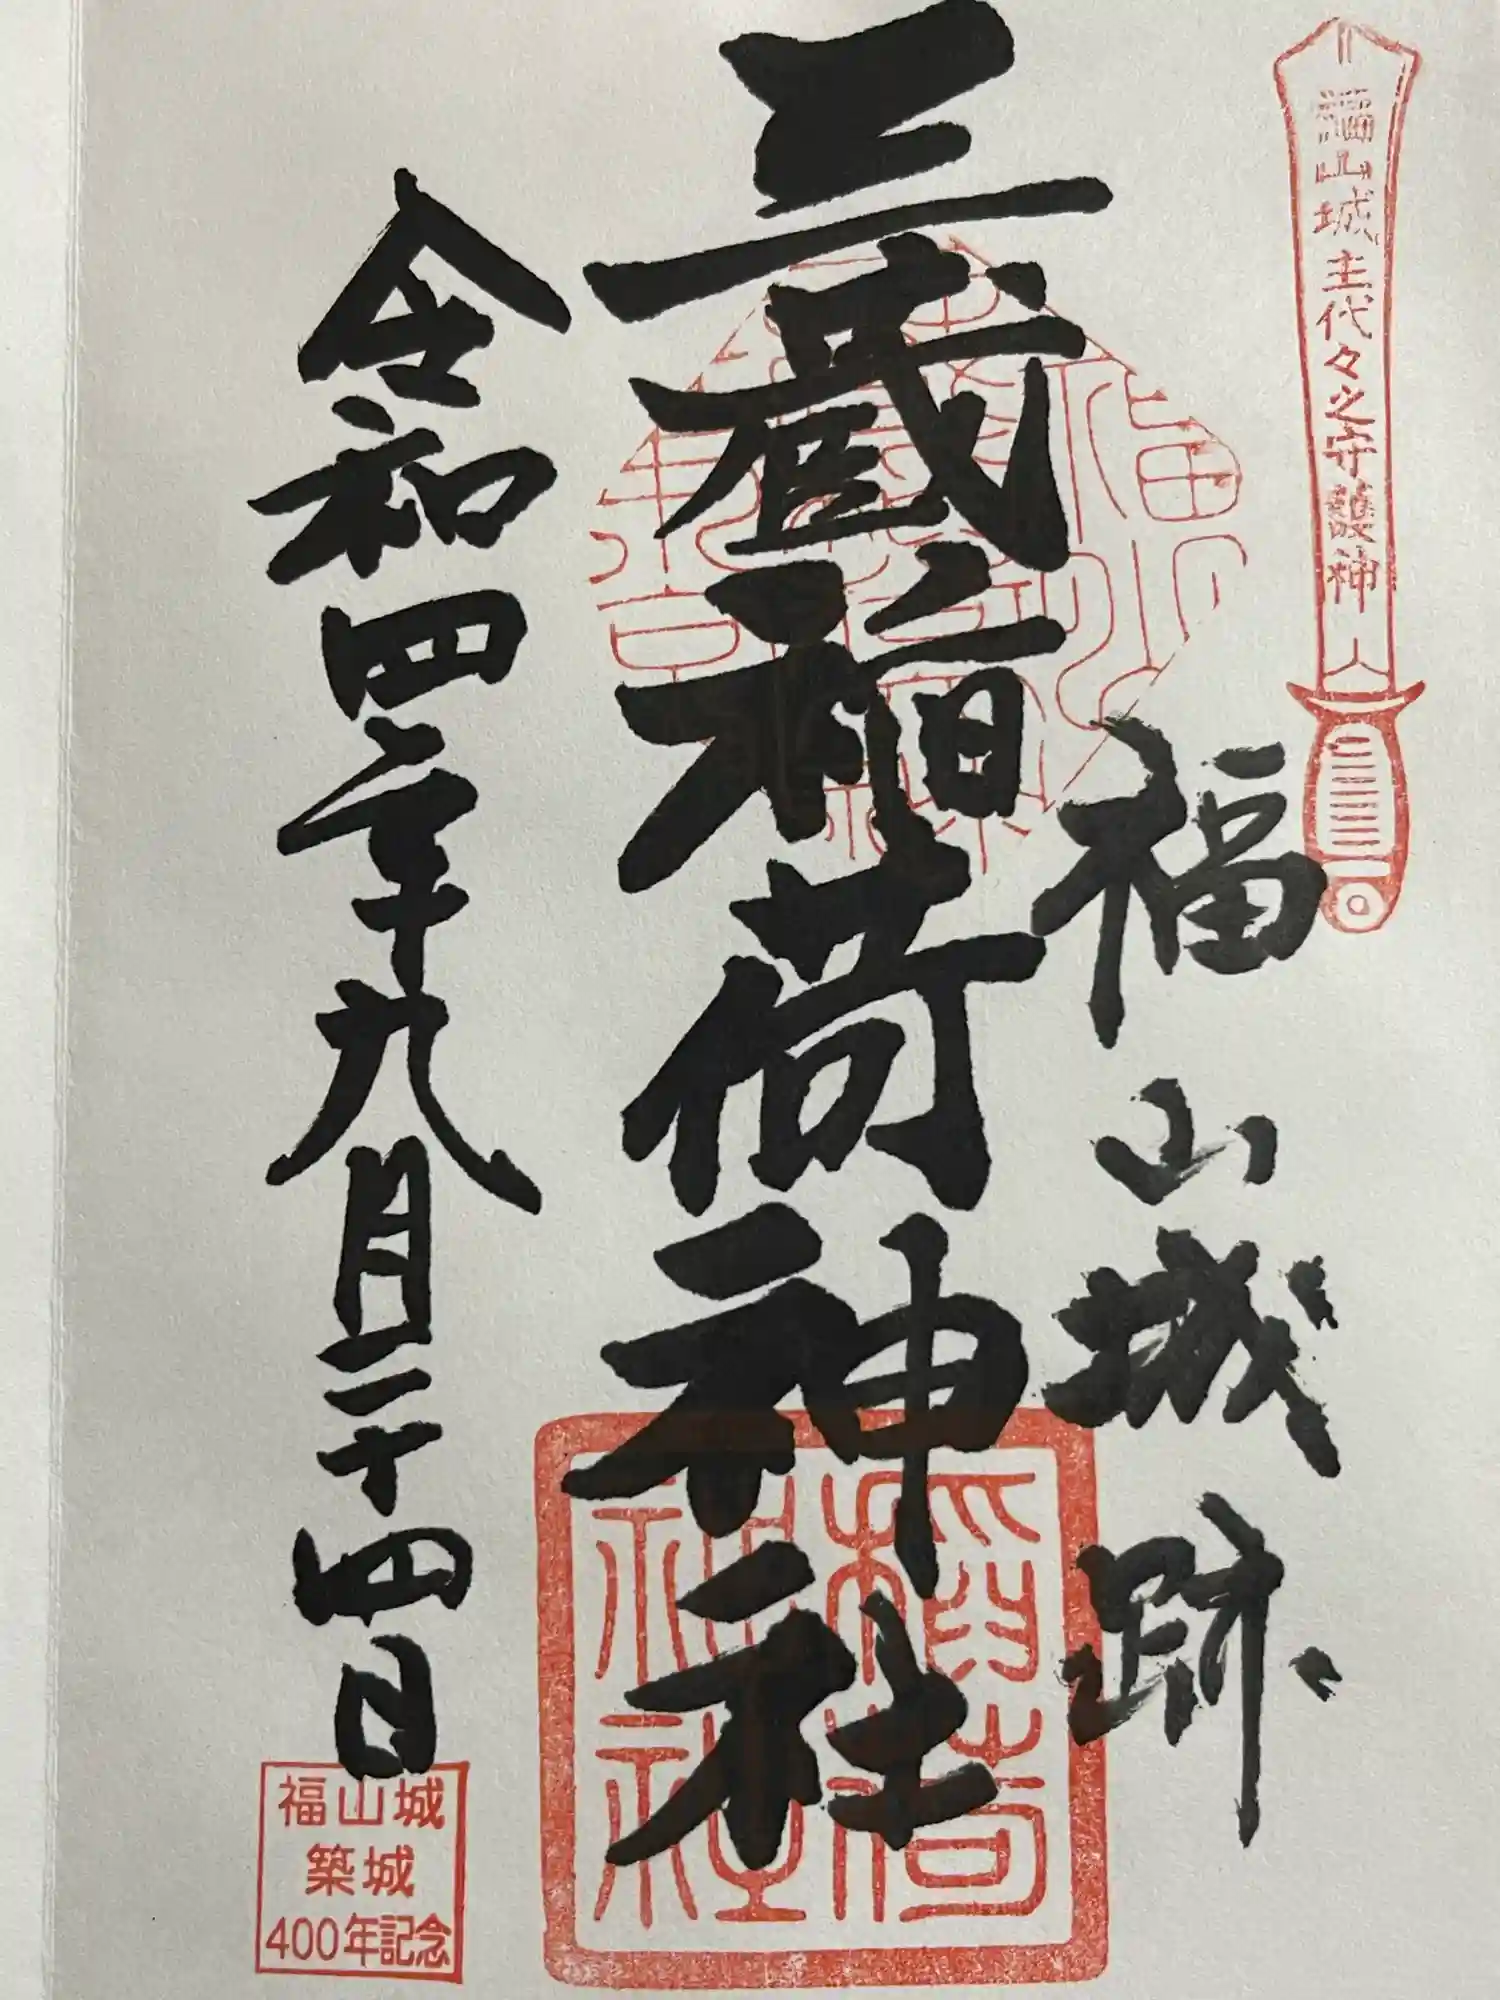 福山城主代々之守護神
福山城跡
三蔵稲荷神社
令和四年九月二十四日
稲荷
神社
福山城
築城
400年記念